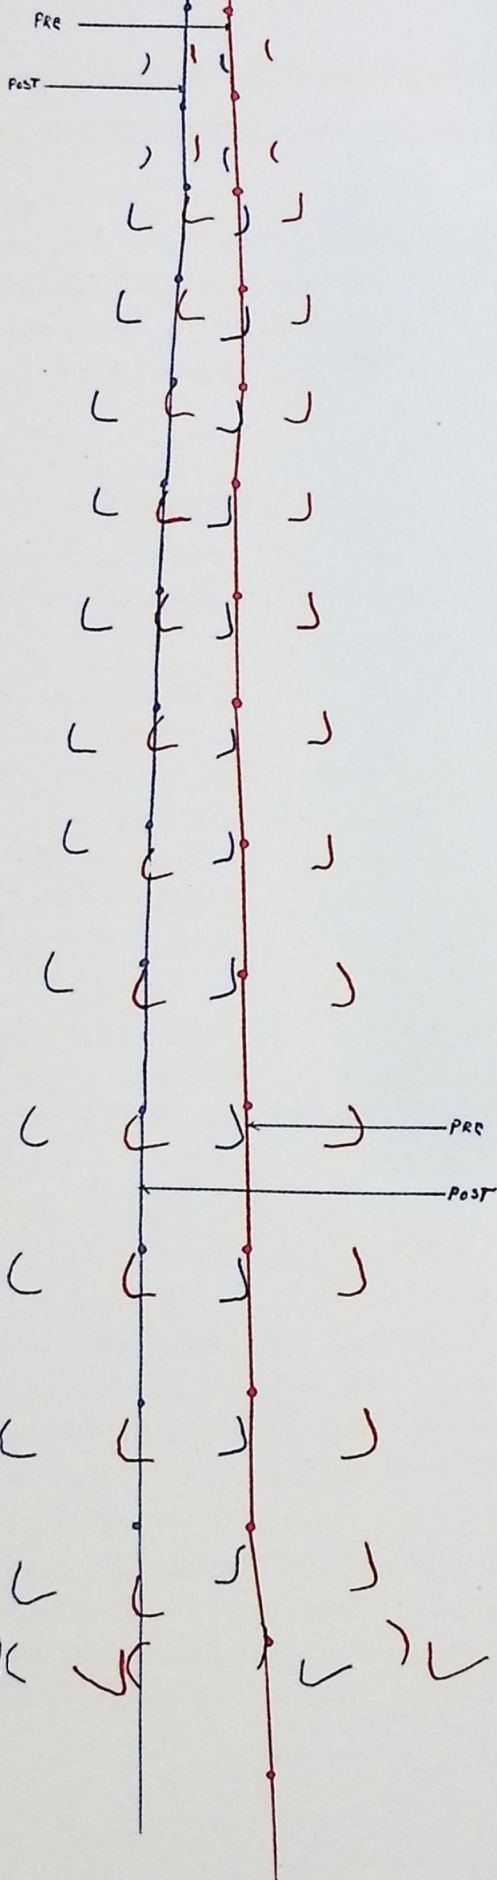 PRE
POST
PRE
POST